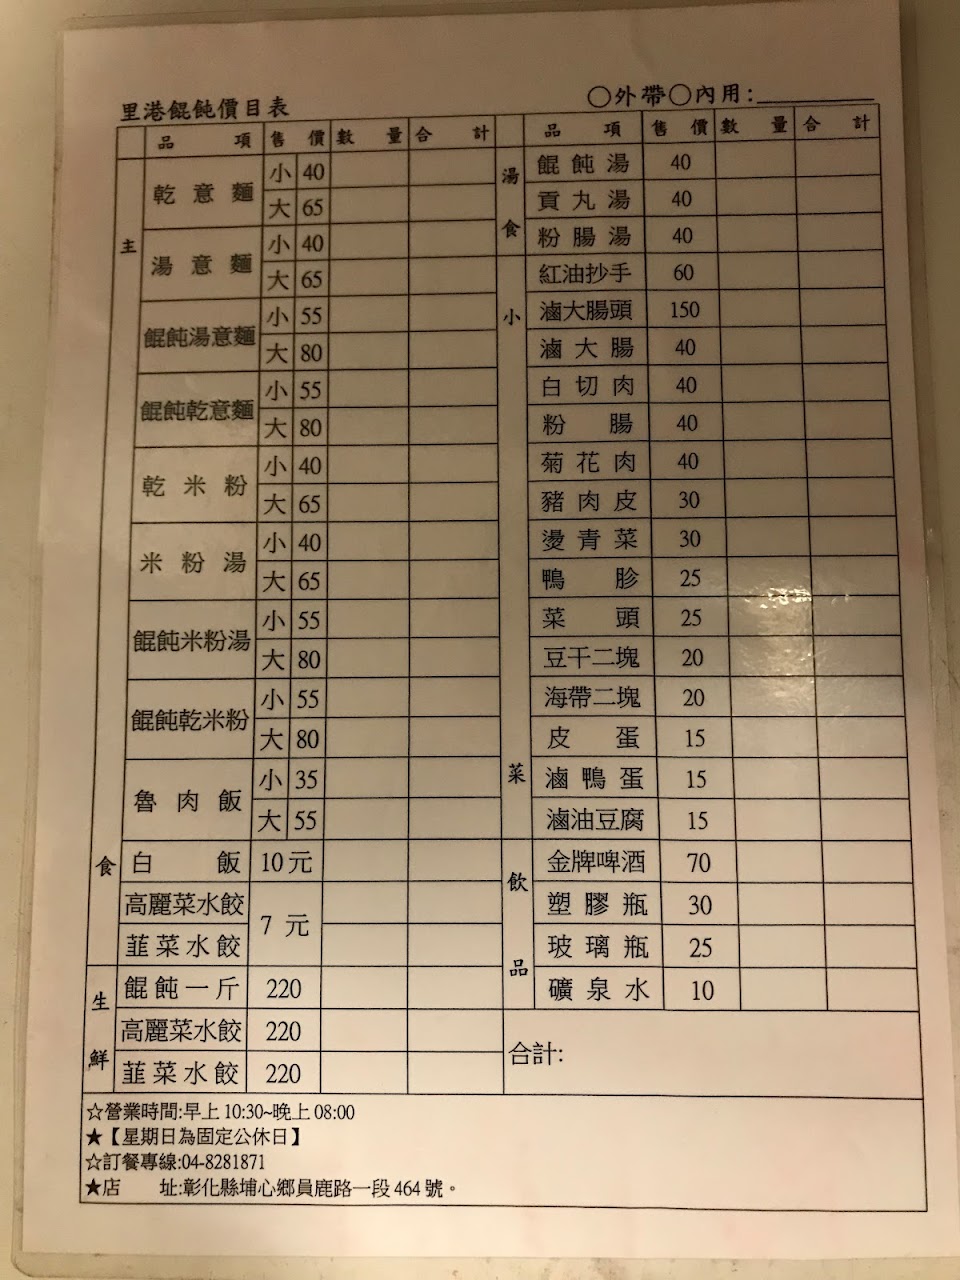 里港餛飩價目表 ○外帶○內用:
品項 售價 數量 合計 品項 售價 數量 合計
主食
乾意麵 小 40
大 65
湯意麵 小 40
大 65
餛飩湯意麵 小 55
大 80
餛飩乾意麵 小 55
大 80
乾米粉 小 40
大 65
米粉湯 小 40
大 65
餛飩米粉湯 小 55
大 80
餛飩乾米粉 小 55
大 80
魯肉飯 小 35
大 55
白飯 10元
高麗菜水餃 7元
韮菜水餃
生鮮
餛飩一斤 220
高麗菜水餃 220
韮菜水餃 220
湯食
餛飩湯 40
貢丸湯 40
粉腸湯 40
小菜
紅油抄手 60
滷大腸頭 150
滷大腸 40
白切肉 40
粉腸 40
菊花肉 40
豬肉皮 30
燙青菜 30
鴨胗 25
菜頭 25
豆干二塊 20
海帶二塊 20
皮蛋 15
滷鴨蛋 15
滷油豆腐 15
飲品
金牌啤酒 70
塑膠瓶 30
玻璃瓶 25
礦泉水 10
合計:
☆營業時間:早上10:30~晚上08:00
★【星期日為固定公休日】
☆訂餐專線:04-8281871
★店 址:彰化縣埔心鄉員鹿路一段464號。